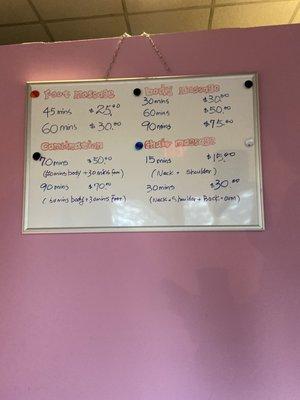 Foot Massage
45 mins $25.00
60 mins $30.00
Combination
70 mins $50.00
(40 mins body + 30 mins foot)
90 mins $70.00
(60 mins body + 30 mins foot)
Body Massage
30 mins $30.00
60 mins $50.00
90 mins $75.00
Chair Massage
15 mins $15.00
(Neck + Shoulder)
30 mins $30.00
(Neck + Shoulder + Back + Arm)